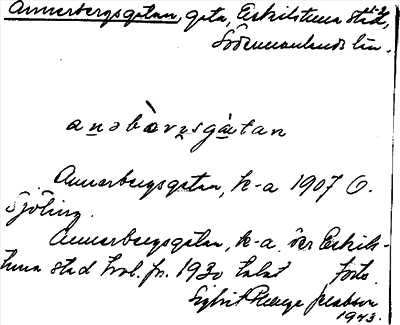 Annerbergsgatan, gata, Eskilstuna stad,
Södermanlands län.
anəbàrysgàtan
Annerbergsgatan, k-a 1907 O.
Sjöling.
Annerbergsgatan, k-a. över Eskils-
tuna stad 1930
Sigrit
1943.